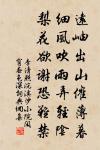 遠岫出山催薄暮
細風吹雨弄輕陰
梨花欲謝恐難禁
李清照浣溪沙小院閑
窗春色深